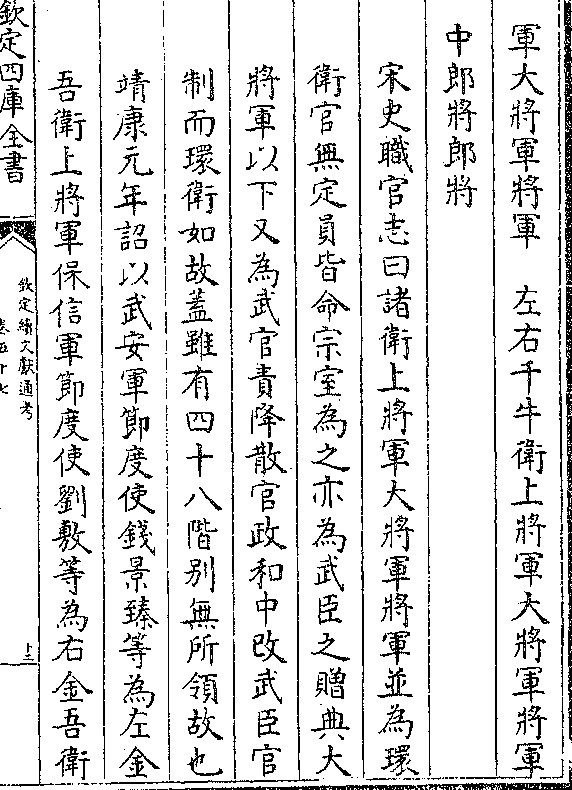 軍大將軍將軍　左右千牛衛上將軍大將軍將軍
中郎將郎將
宋史職官志曰諸衛上將軍大將軍將軍並為環
衛官無定員皆命宗室為之亦為武臣之贈典大
將軍以下又為武官責降散官政和中改武臣官
制而環衛如故蓋雖有四十八階别無所領故也
靖康元年詔以武安軍節度使錢景臻等為左金
吾衛上將軍保信軍節度使劉敷等為右金吾衛
欽定四庫全書
欽定續文獻通考
卷五十七
十三